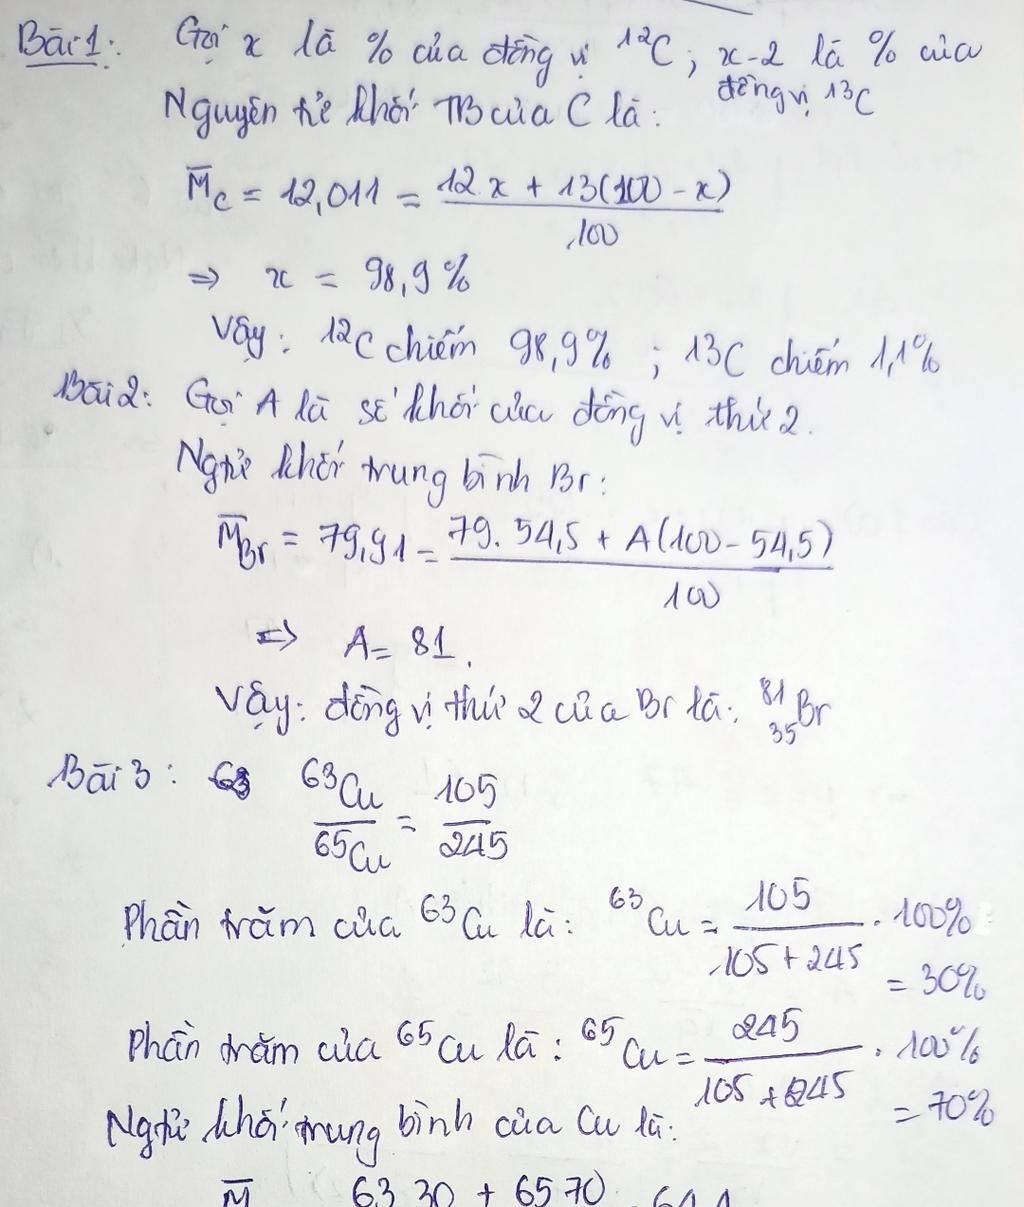 Bài 1: Gọi x là % của đồng vị ¹²C; x-2 là % của
đồng vị ¹³C
Nguyên tử khối TB của C là:
M̅_C = 12,011 = (12.x + 13(100 - x))/100
⇒ x = 98,9%
Vậy: ¹²C chiếm 98,9% ; ¹³C chiếm 1,1%
Bài 2: Gọi A là số khối của đồng vị thứ 2.
Ngtử khối trung bình Br:
M̅_Br = 79,91 = (79. 54,5 + A(100 - 54,5))/100
⇒ A = 81.
Vậy: đồng vị thứ 2 của Br là: ⁸¹₃₅Br
Bài 3: ⁶³Cu/⁶⁵Cu = 105/245
Phần trăm của ⁶³Cu là: ⁶³Cu = 105/(105+245) . 100%
= 30%
Phần trăm của ⁶⁵Cu là: ⁶⁵Cu = 245/(105+245) . 100%
= 70%
Ngtử khối trung bình của Cu là:
M̅ 63 30 + 65 70